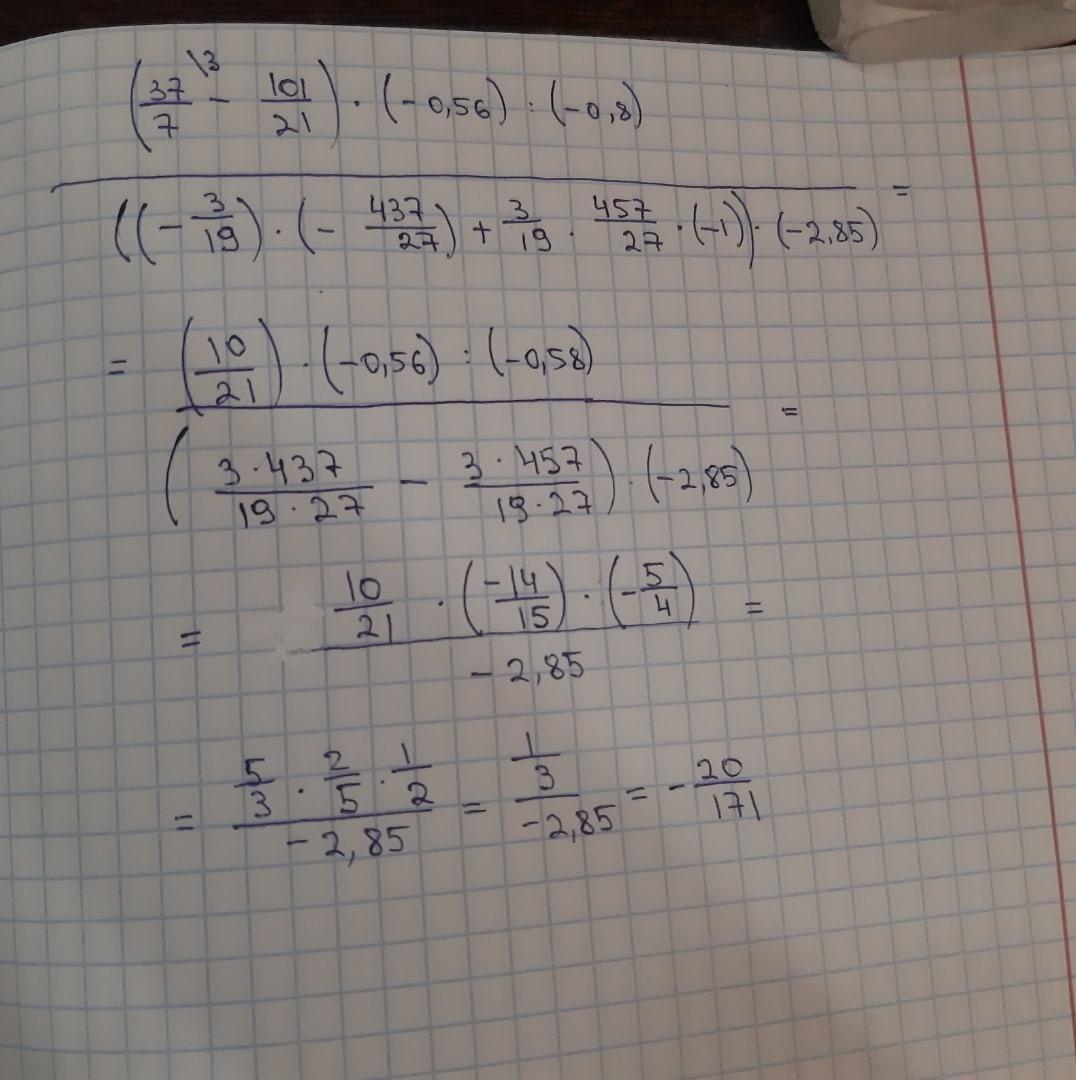 (37/7 \3 - 101/21) · (-0,56) : (-0,8)
((-3/19) · (-437/27) + 3/19 · 457/27 · (-1)) · (-2,85) =
= (10/21) · (-0,56) : (-0,58)
(3·437/19·27 - 3·457/19·27) · (-2,85) =
= 10/21 · (-14/15) · (-5/4) =
-2,85
= 5/3 · 2/5 · 1/2 / -2,85 = 1/3 / -2,85 = -20/171